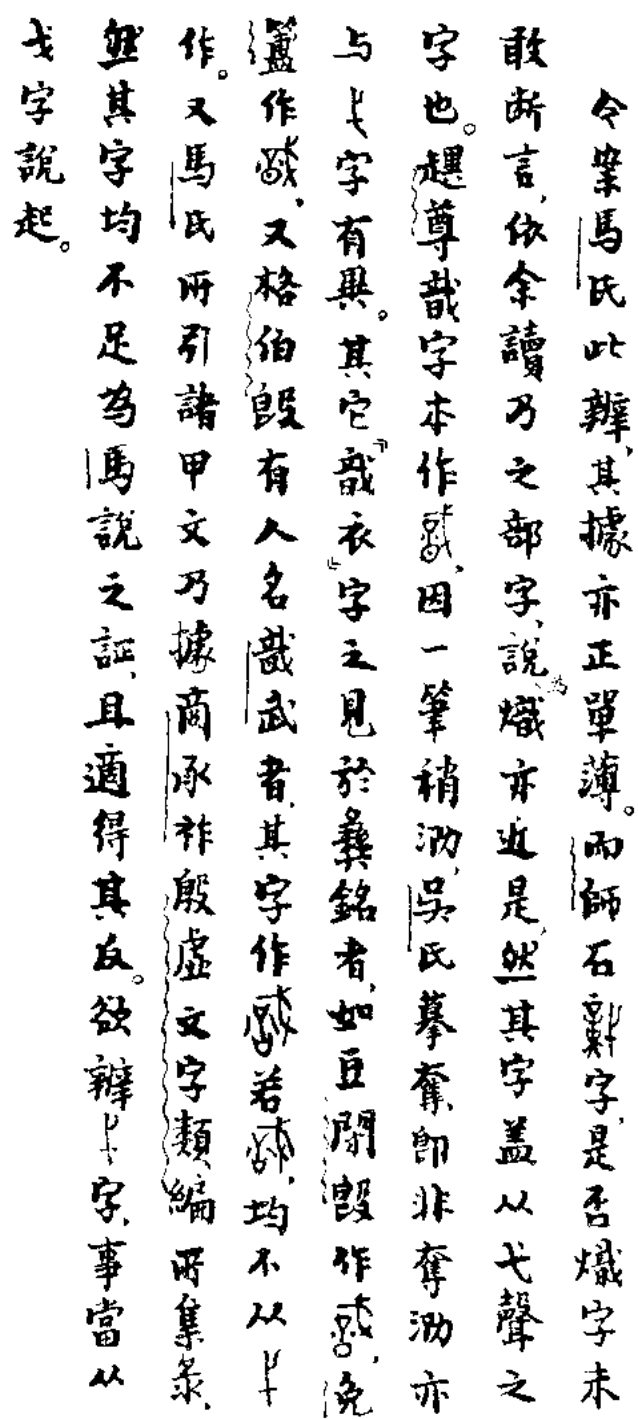 今案馬氏此辨，其據亦正單薄。而師石字，是否熾字未
敢斷言，依余讀乃之部字，說為熾亦近是，然其字蓋从弋聲之
字也。趩尊哉字本作，因一筆稍泐，吳氏摹奪，即非奪泐亦
与字有異。其它「哉衣」字之見於彝銘者，如豆閉𣪘作，免
簠作，又格伯𣪘有人名哉武者，其字作若，均不从
作。又馬氏所引諸甲文乃據商承祚殷虛文字類編所集彔，
然其字均不足為馬說之証，且適得其反。欲辨字，事當从
弋字說起。